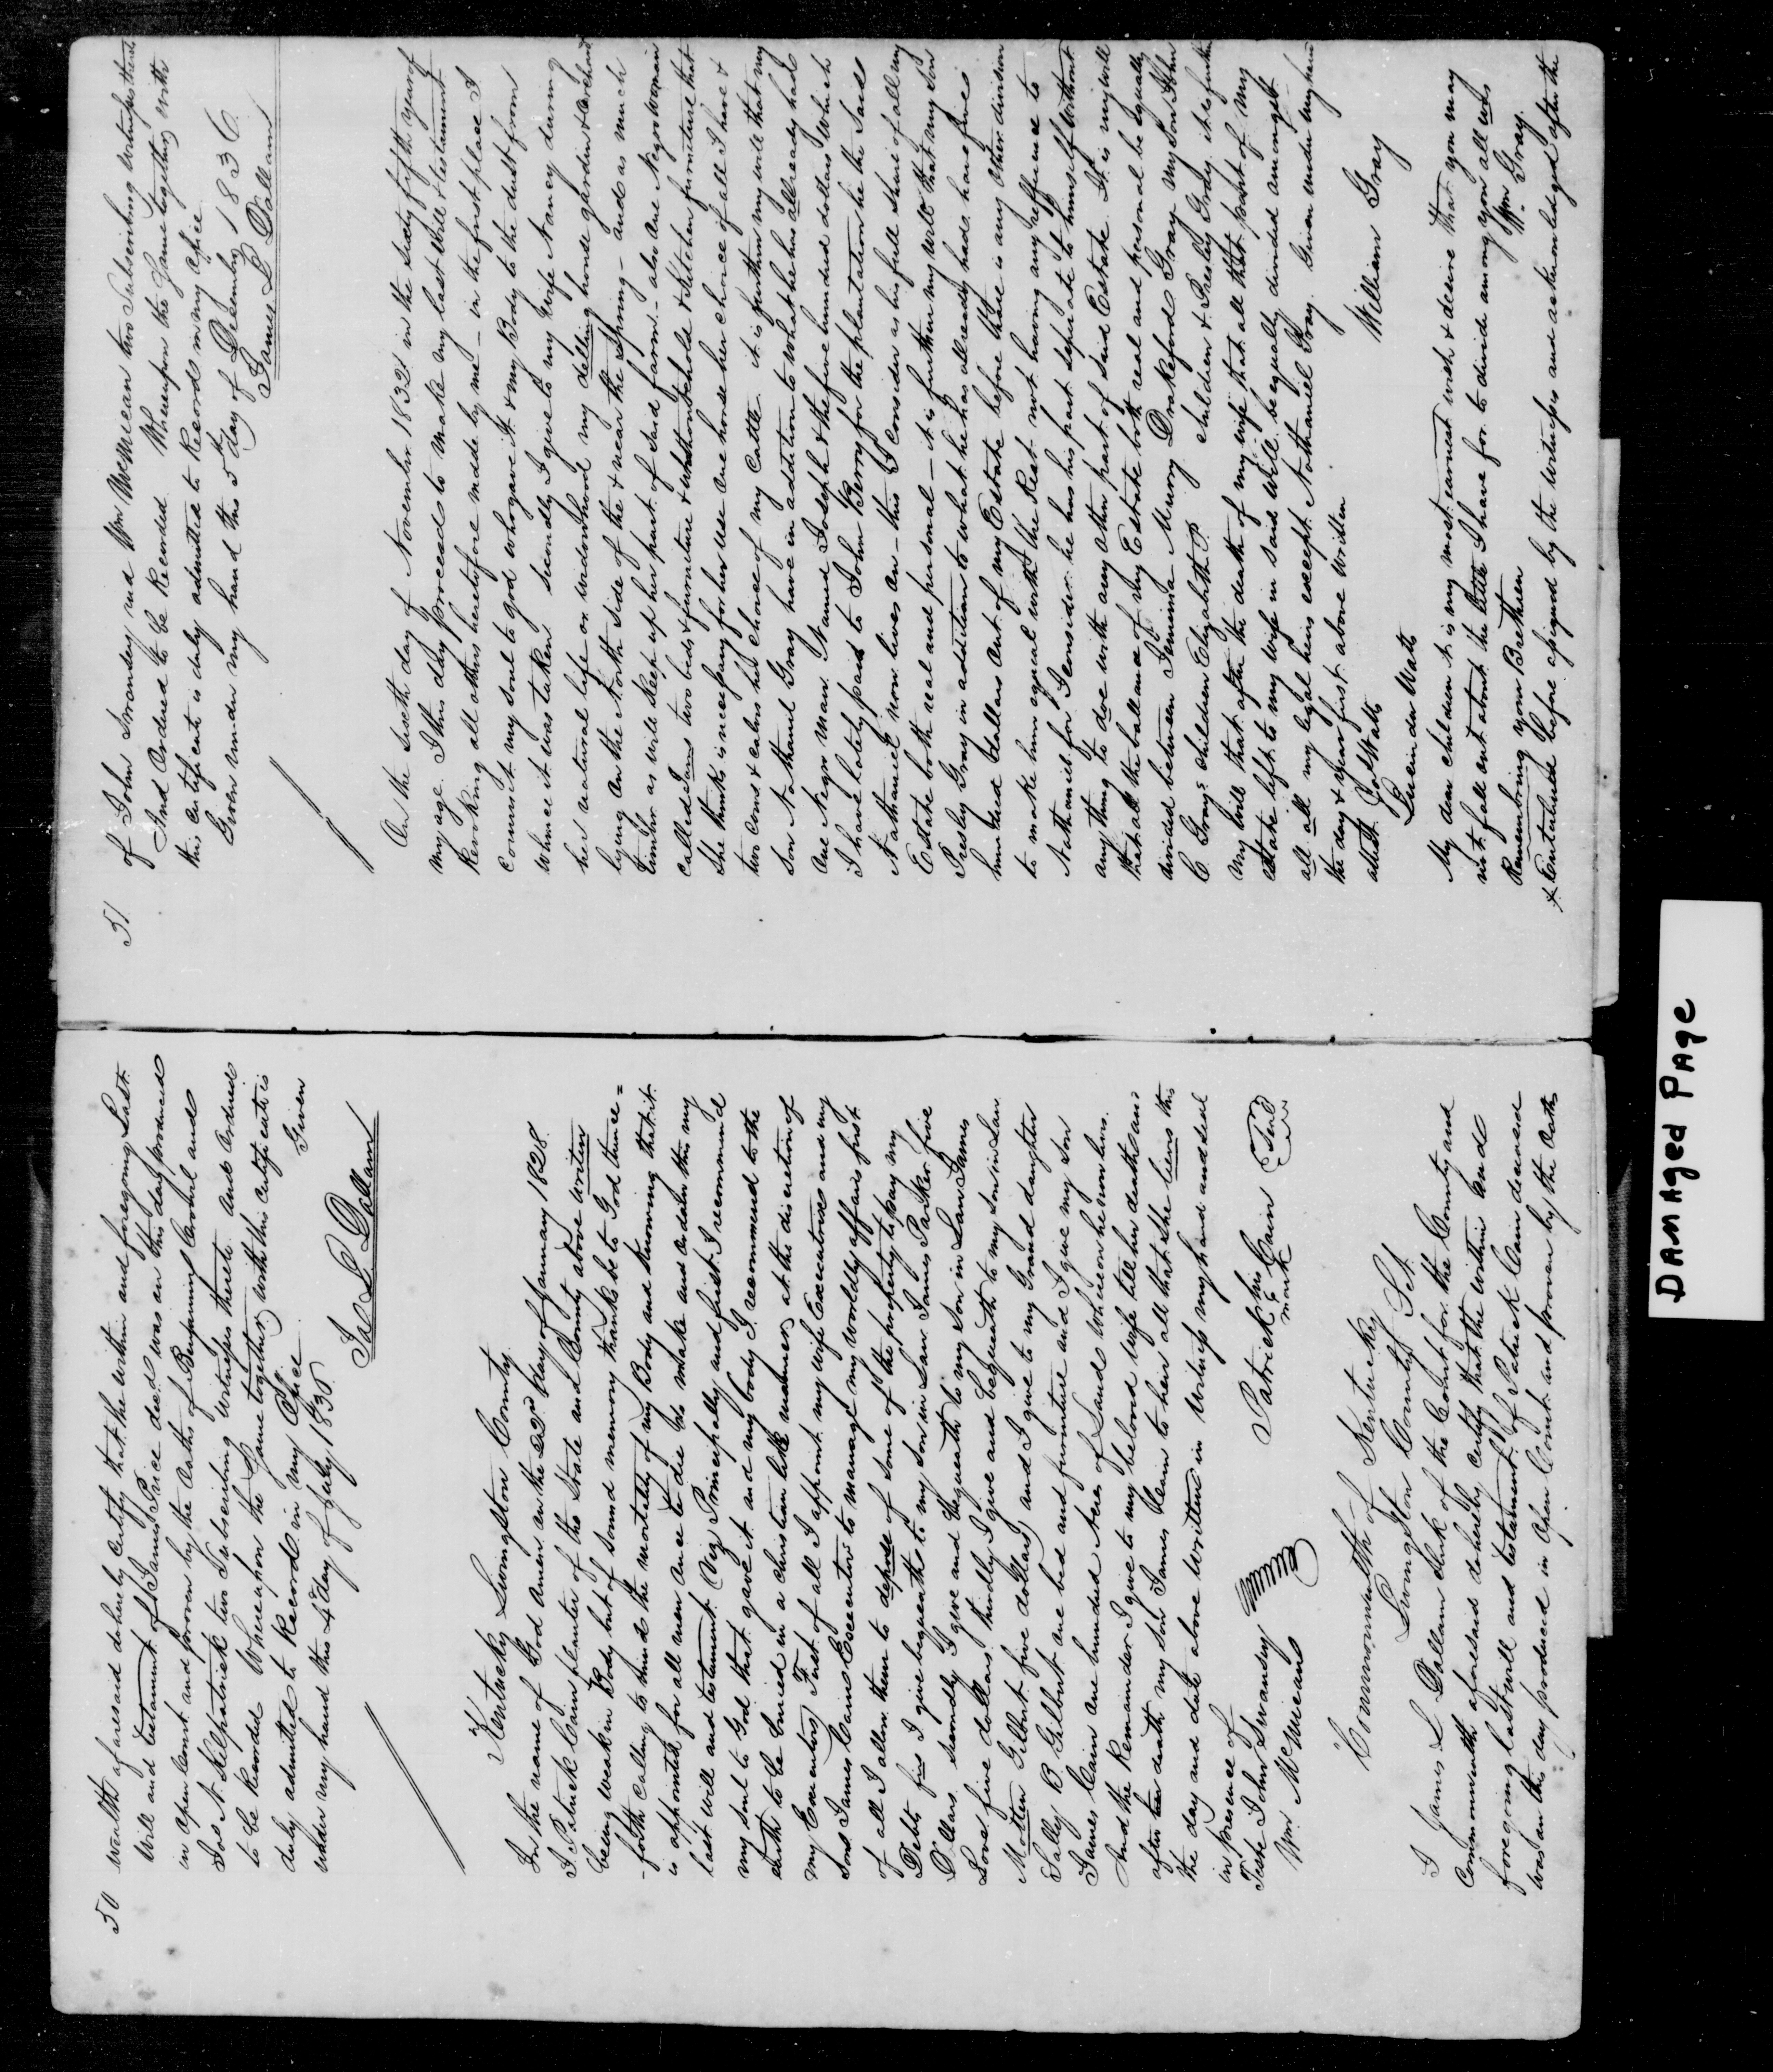 50
wealth aforesaid do hereby Certify that the within and foregoing Last
Will and testament of James Price decd was on this day produced
in open Court and proven by the Oaths of Benjamin Crowel and
Jos A Kilpatrick two Subscribing witnesses thereto and Ordered
to be Recorded Whereupon the Same together with this certificate is
duly admitted to Record in my Office. Given
under my hand this 4th day of July 1836
Jas L Dallam
Kentucky Livingston County
In the name of God amen on the 22nd day of January 1828.
I Patrick Cain planter of the State and County above writen
being weak in Body but of Sound memory thanks be to God thence=
-forth calling to mind the mortality of my Body and knowing that it
is appointed for all men once to die do make and ordain this my
last will and testament (Viz Principally and first I recommend
my soul to God that gave it and my body I recommend to the
earth to be buried in a christian like manner at the discretion of
my Executors First of all I appoint my wife Executrix and my
Sons James Cains Executor to manage my worldly affairs first
of all I allow them to dispose of some of the property to pay my
Debts I give bequeath to my Son in Law James Parker five
Dollars secondly I give and bequeath to my Son in Law James
Love five dollars thirdly I give and bequeath to my Son in Law
Gilbert five dollars and I give to my Grand daughter
Sally B Gilbert one bed and furniture and I give my Son
James Cain one hundred Acres of Land whereon he now lives.
And the Remainder I give to my beloved wife till her death and
after her death my Son James Cain to heir all that She this
the day and date above written in witness my hand and seal
in presence of
Teste John Swansey
Wm McMeans
Patrick his Cain Seal
mark
Commonwealth of Kentucky
Livingston County Sct
I James L Dallam clerk of the Court for the County and
Commonwealth aforesaid do hereby certify that the within and
foregoing last will and testament of Patrick Cain deceased
was on this day produced in Open Court and proven by the Oaths
51
of John Swansey and Wm McMean two Subscribing witnesses thereto
And Ordered to be Recorded Whereupon the Same together with
this certificate is duly admitted to Record in my office
Given under my hand this 5th day of December 1836
James L Dallam
On the sixth day of November 1832 in the sixty fifth year of
my age I this day proceed to make my last will & testament
Revoking all others heretofore made by me - in the first place I
commit my soul to god who gave it & my Body to the dust from
whence it was taken secondly I give to my wife Nancy during
her natural life or widowhood my house garden & orchard
lying on the North side of the & near the Spring - and as much
timber as will keep up her part of said farm - also one Negro woman
called two beds & furniture & household & Kitchen furniture that
She thinks is necessary for her use one horse her choice of all I have &
two cows & calves her choice of my cattle it is further my will that my
Son Nathaniel Gray have in addition to what he has allready had
One Negro man Named Joseph & the five hundred dollars which
I have lately paid to John Berry for the plantation he the Said
Nathaniel now lives on - this I consider as his full share of all my
Estate both real and personal - it is further my will that my Son
Presley Gray in addition to what he has allready had have five
hundred dollars out of my Estate before there is any other division
to make him equal with the Rest not having any refference to
Nathaniel for I consider he has his part seperate to himself without
any thing to doe with any other part of said Estate It is my will
that all the ballance of my Estate both real and personal be equally
divided between Jemima Murry Drakeford Gray my Son John
C Grays children Elizabeth children & Presley Gray it is further
my will that after the death of my wife that all that part of my
estate left to my wife in said will be equally divided amongst
all all my legal heirs except Nathaniel Gray. Given under my hand
the day & year first above written
attest
Watts
Watts
William Gray
My dear children it is my most earnest wish & desire that you may
not fall out about the little I have for to divide among you all
Remembring you are Bretheren
Wm Gray
& Entatured before assigned by the witness and acknowledged after the
DAMAged PAge